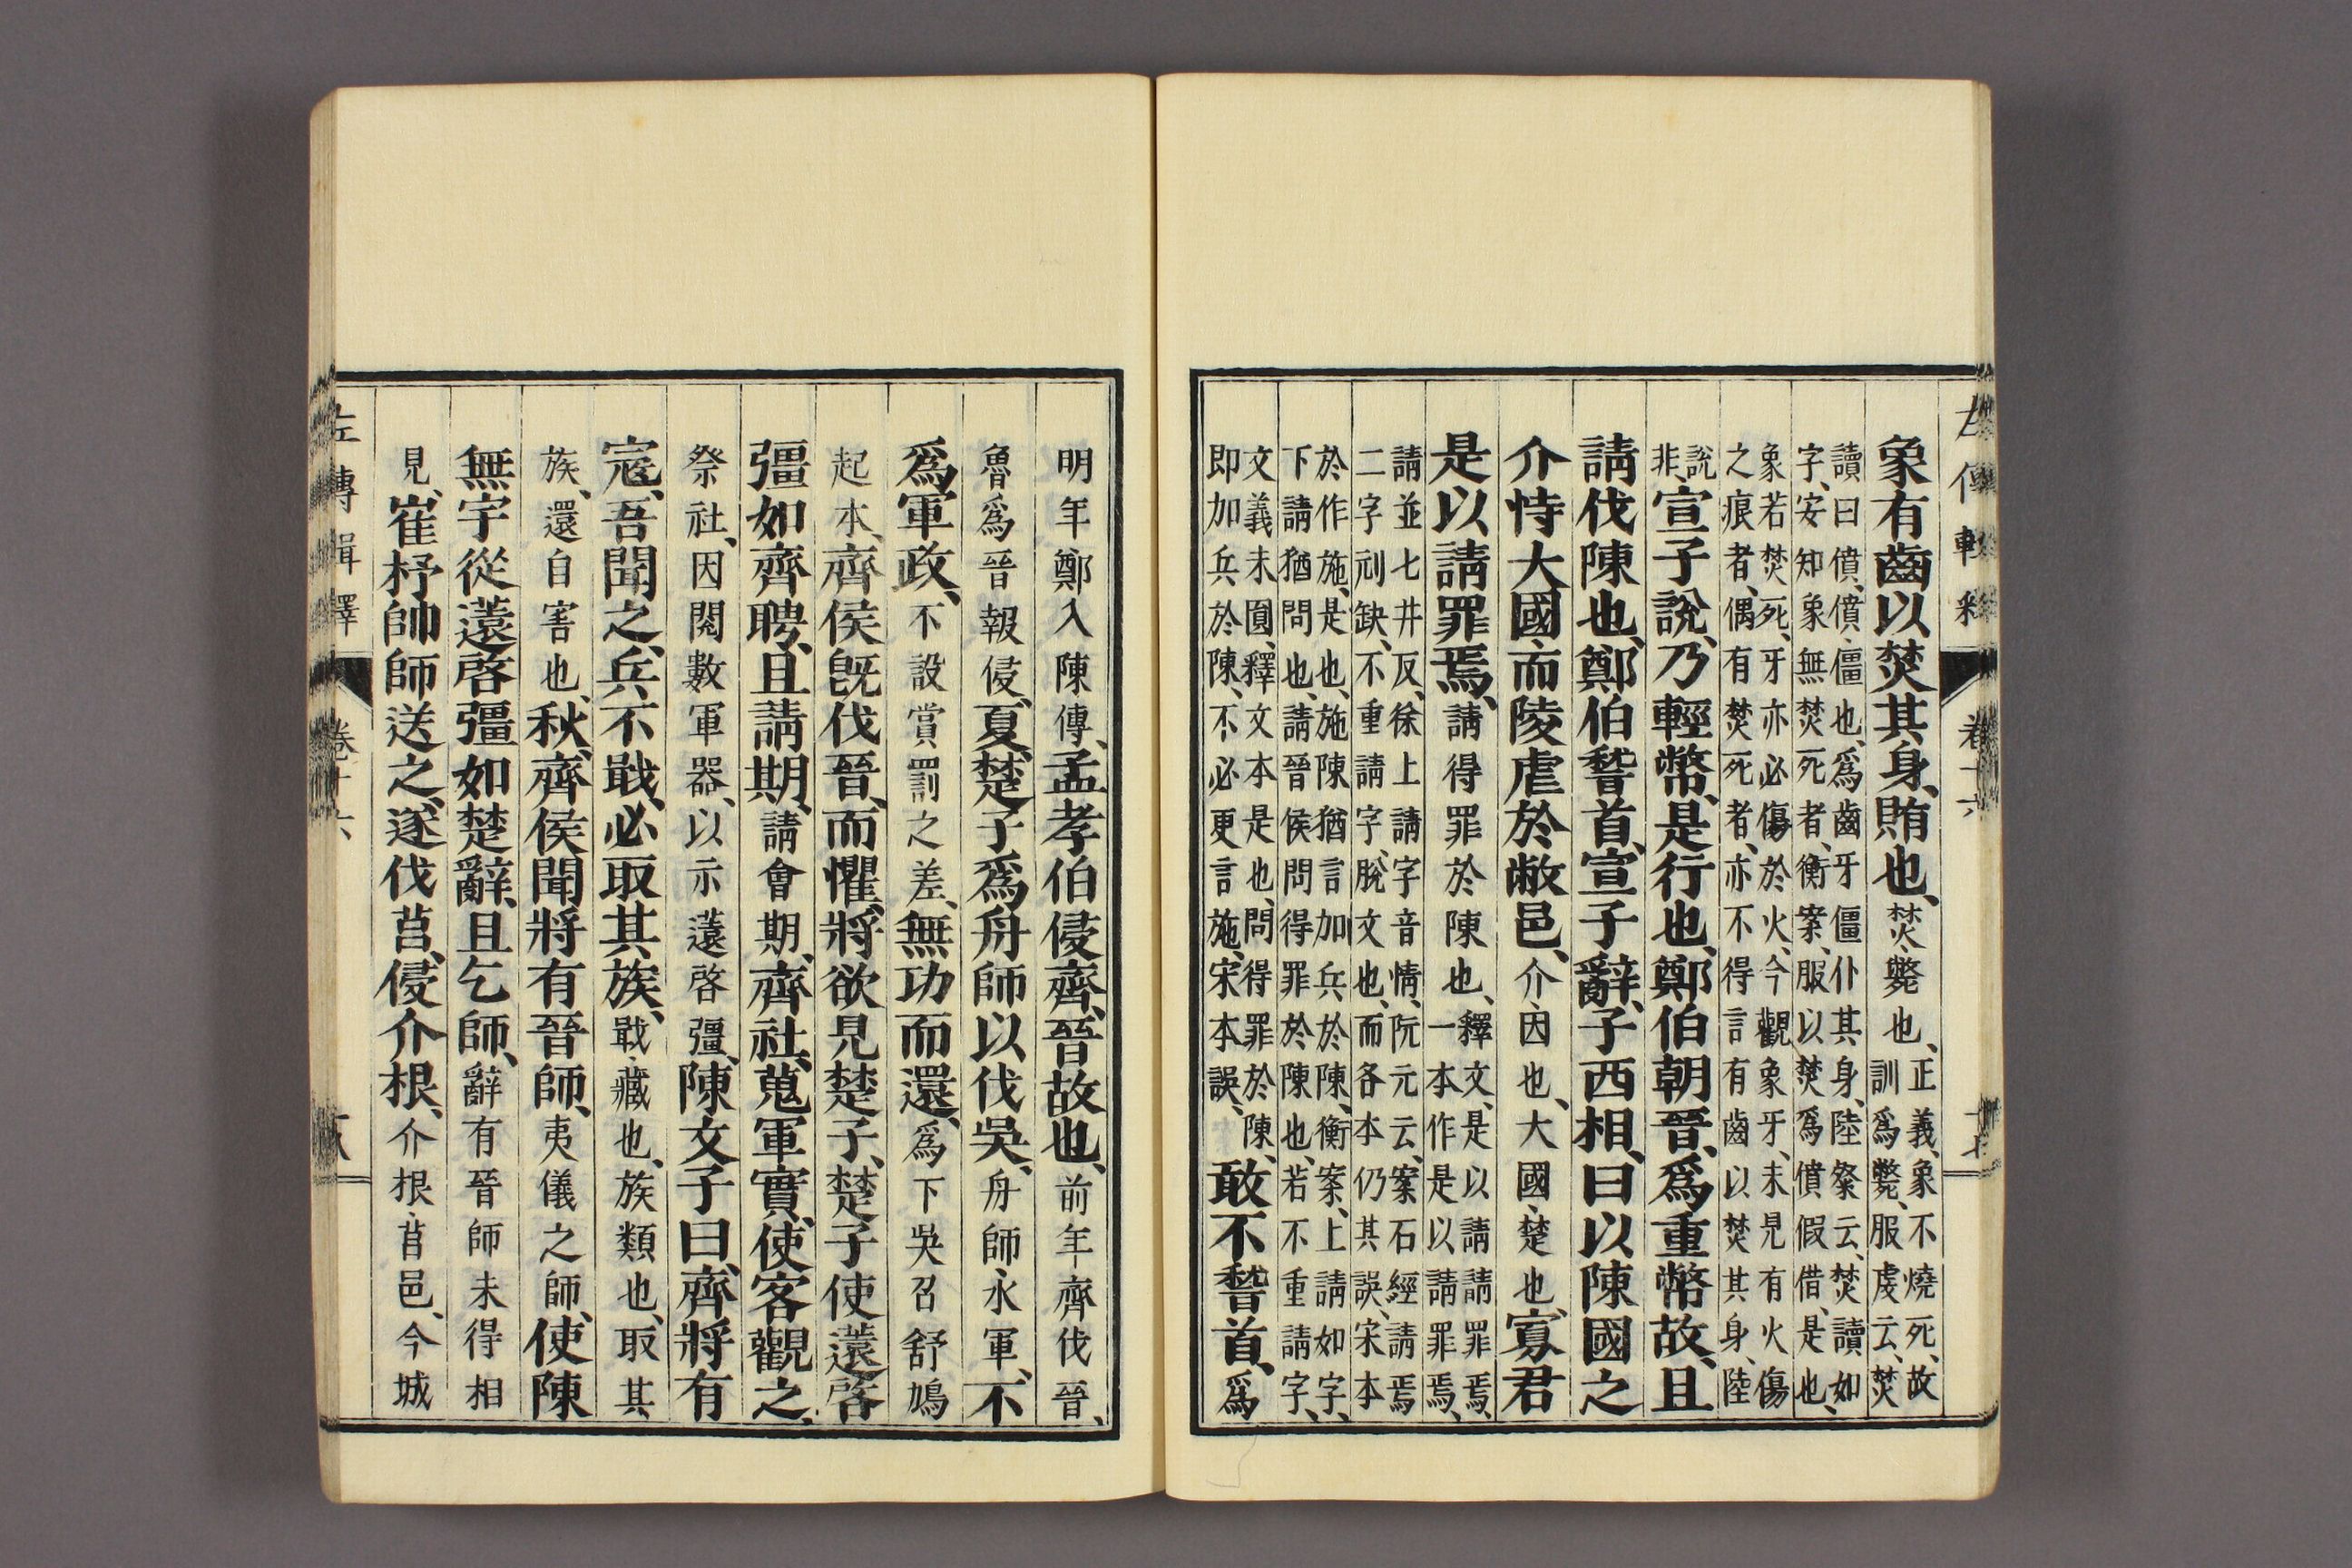 左傳輯釋 卷十六 十七
象有齒以焚其身、賄也、焚、斃也、
正義、象不燒死、故
訓爲斃、服虔云、焚
讀曰僨、僨僵也、爲齒牙僵仆其身、陸粲云、焚讀如
字、安知象無焚死者、衡案、服以焚爲僨假借、是也、
象若焚死、牙亦必傷於火、今觀象牙、未見有火傷
之痕者、偶有焚死者、亦不得言有齒以焚其身、陸
說
非、
宣子說、乃輕幣、是行也、鄭伯朝晉、爲重幣故、且
請伐陳也、鄭伯稽首、宣子辭、子西相、曰以陳國之
介恃大國、而陵虐於敝邑、介、因也、大國、楚也、寡君
是以請罪焉、請得罪於陳也、
釋文、是以請請罪焉、
一本作是以請罪焉、
請並七井反、徐上請字音情、阮元云、案石經請焉
二字刓缺、不重請字、脫文也、而各本仍其誤、宋本
於作施、是也、施陳猶言加兵於陳、衡案、上請如字、
下請猶問也、請晉侯問得罪於陳也、若不重請字、
文義未圓、釋文本是也、問得罪於陳、
即加兵於陳、不必更言施、宋本誤、
敢不稽首、爲
明年鄭入陳傳、孟孝伯侵齊、晉故也、前年齊伐晉、
魯爲晉報侵、夏、楚子爲舟師以伐吳、舟師、水軍、不
爲軍政、不設賞罰之差、無功而還、爲下吳召舒鳩
起本、齊侯既伐晉、而懼、將欲見楚子、楚子使薳啓
彊如齊聘、且請期、請會期、齊社、蒐軍實、使客觀之、
祭社、因閱數軍器、以示薳啓彊、陳文子曰、齊將有
寇、吾聞之、兵不戢、必取其族、戢、藏也、族、類也、取其
族、還自害也、秋、齊侯聞將有晉師、夷儀之師、使陳
無宇從薳啓彊如楚辭、且乞師、辭有晉師未得相
見、崔杼帥師送之、遂伐莒、侵介根、介根、莒邑、今城
左傳輯釋 卷十六 十八